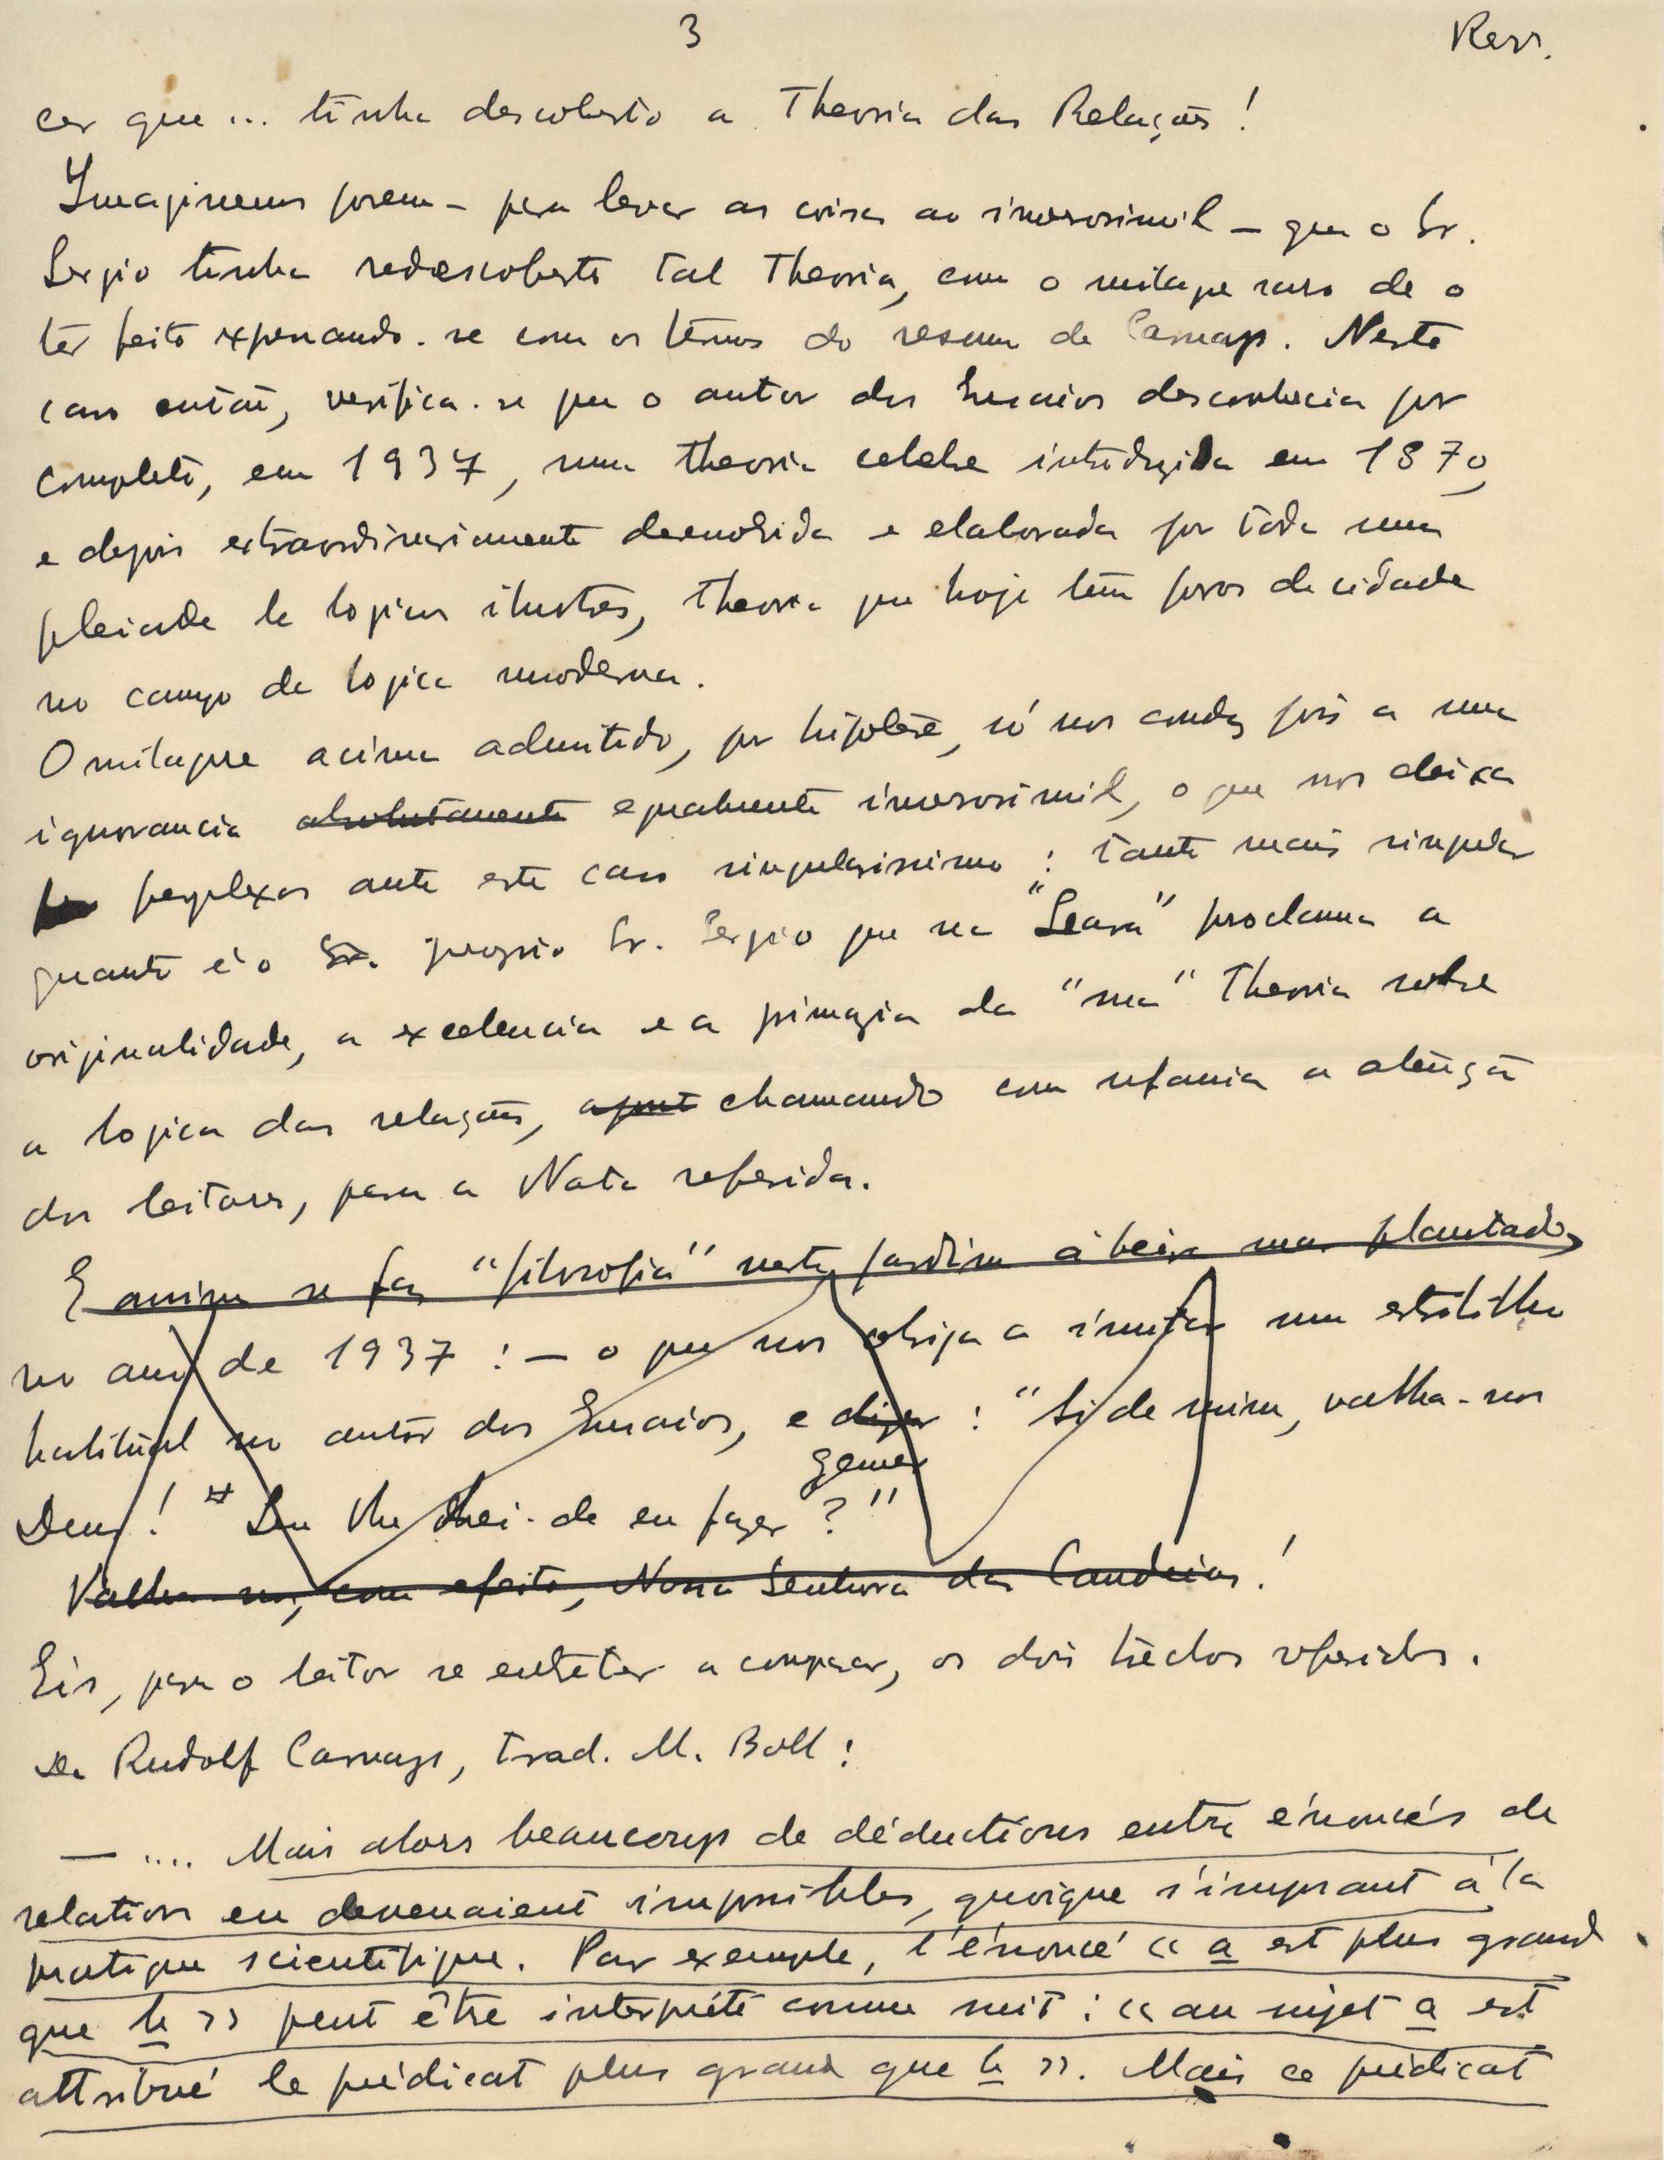 3 Rev.
cer que... tinha descoberto a Theoria das Relações!
Imaginemos porem – para levar as coisas ao inverosimil – que o Sr.
Sergio tinha redescoberto tal Theoria, com o milagre raro de o
ter feito expressando-se com os termos do resumo de Carnap. Neste
caso então, verifica-se que o autor dos Ensaios desconhecia por
completo, em 1937, uma theoria celebre introduzida em 1870,
e depois extraordinariamente desenvolvida e elaborada por toda uma
pleiade de logicos ilustres, theoria que hoje tem foros de cidade
no campo da logica moderna.
O milagre acima admitido, por hipotese, só nos conduz pois a uma
ignorancia absolutamente egualmente inverosimil, o que nos deixa
perplexos ante este caso singularissimo: tanto mais singular
quanto é o Sr. proprio Sr. Sergio que na "Seara" proclama a
originalidade, a excelencia e a primazia da "sua" Theoria sobre
a logica das relações, chamando com ufania a atenção
dos leitores, para a Nota referida.
E assim se faz "filosofia" neste jardim á beira mar plantado,
no ano de 1937: – o que nos obriga a imitar um estribilho
habitual no autor dos Ensaios, e dizer: "Ai de mim, valha-nos
gemer
Deus! Que lhe hei-de eu fazer?"
Valha-nos, com efeito, Nossa Senhora das Candeias!
Eis, para o leitor se entreter a comparar, os dois trechos referidos.
De Rudolf Carnap, trad. M. Boll:
– .... Mais alors beaucoup de déductions entre énoncés de
relation en devenaient impossibles, quoique s'imposant à la
pratique scientifique. Par exemple, l'énoncé « a est plus grand
que b » peut être interprété comme suit: « au sujet a est
attribué le prédicat plus grand que b ». Mais ce prédicat